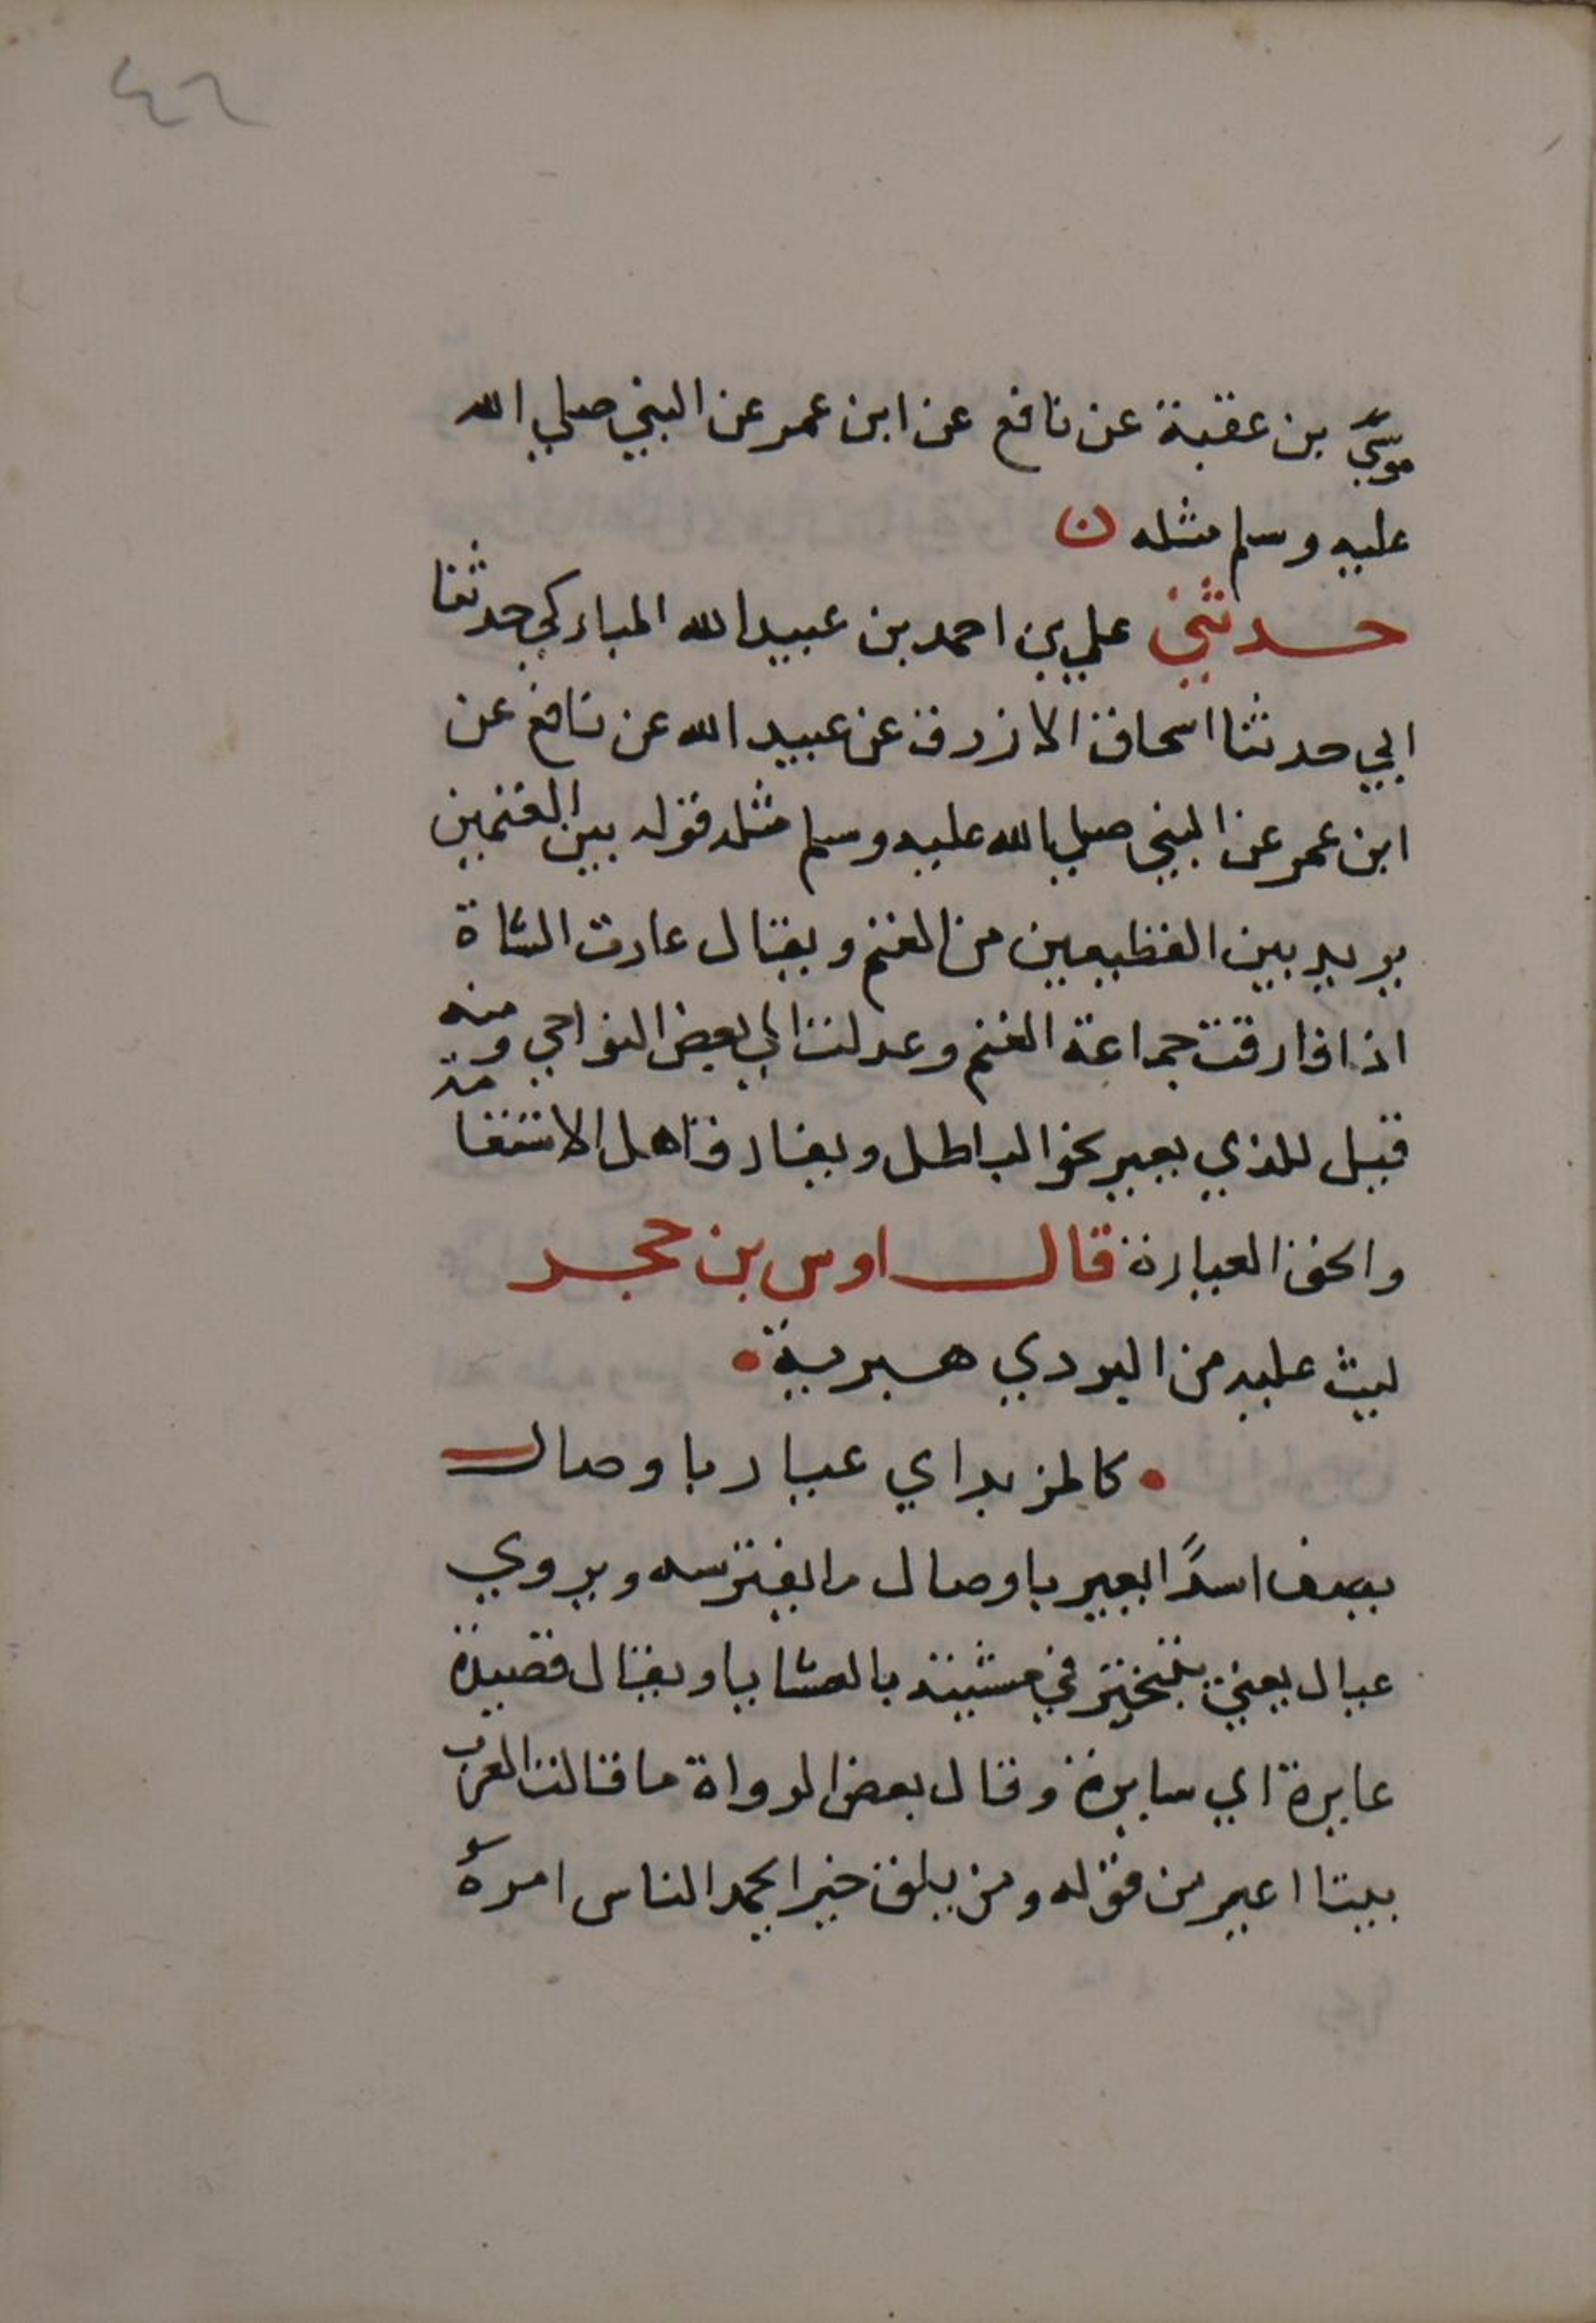 ٤٦
موسي بن عقبة عن نافع عن ابن عمر عن النبي صلي الله
عليه وسلم مثله ن
حدثني علي بن احمد بن عبيد الله المباركي حدثنا
ابي حدثنا اسحاق الازرق عن عبيد الله عن نافع عن
ابن عمر عن النبي صلي الله عليه وسلم مثله قوله بين الغنمين
يريد بين القطيعين من الغنم ويقال عارت الشاة
اذا فارقت جماعة الغنم وعدلت الي بعض النواحي ومنه
قيل للذي يعير نحو الباطل ويفارق اهل الاستقامة
والحق العيارة قال اوس بن حجر
ليث عليه من البردي هبرية
كالمزبراي عيار باوصال
يصف اسدًا يعير باوصال ما يفترسه ويروي
عيال يعني يتبختر في مشيته بالعشايا ويقال قصيدة
عايرة اي سايرة وقال بعض الرواة ما قالت العرب
بيتا اعير من قوله ومن يلق خيرا يحمد الناس امره